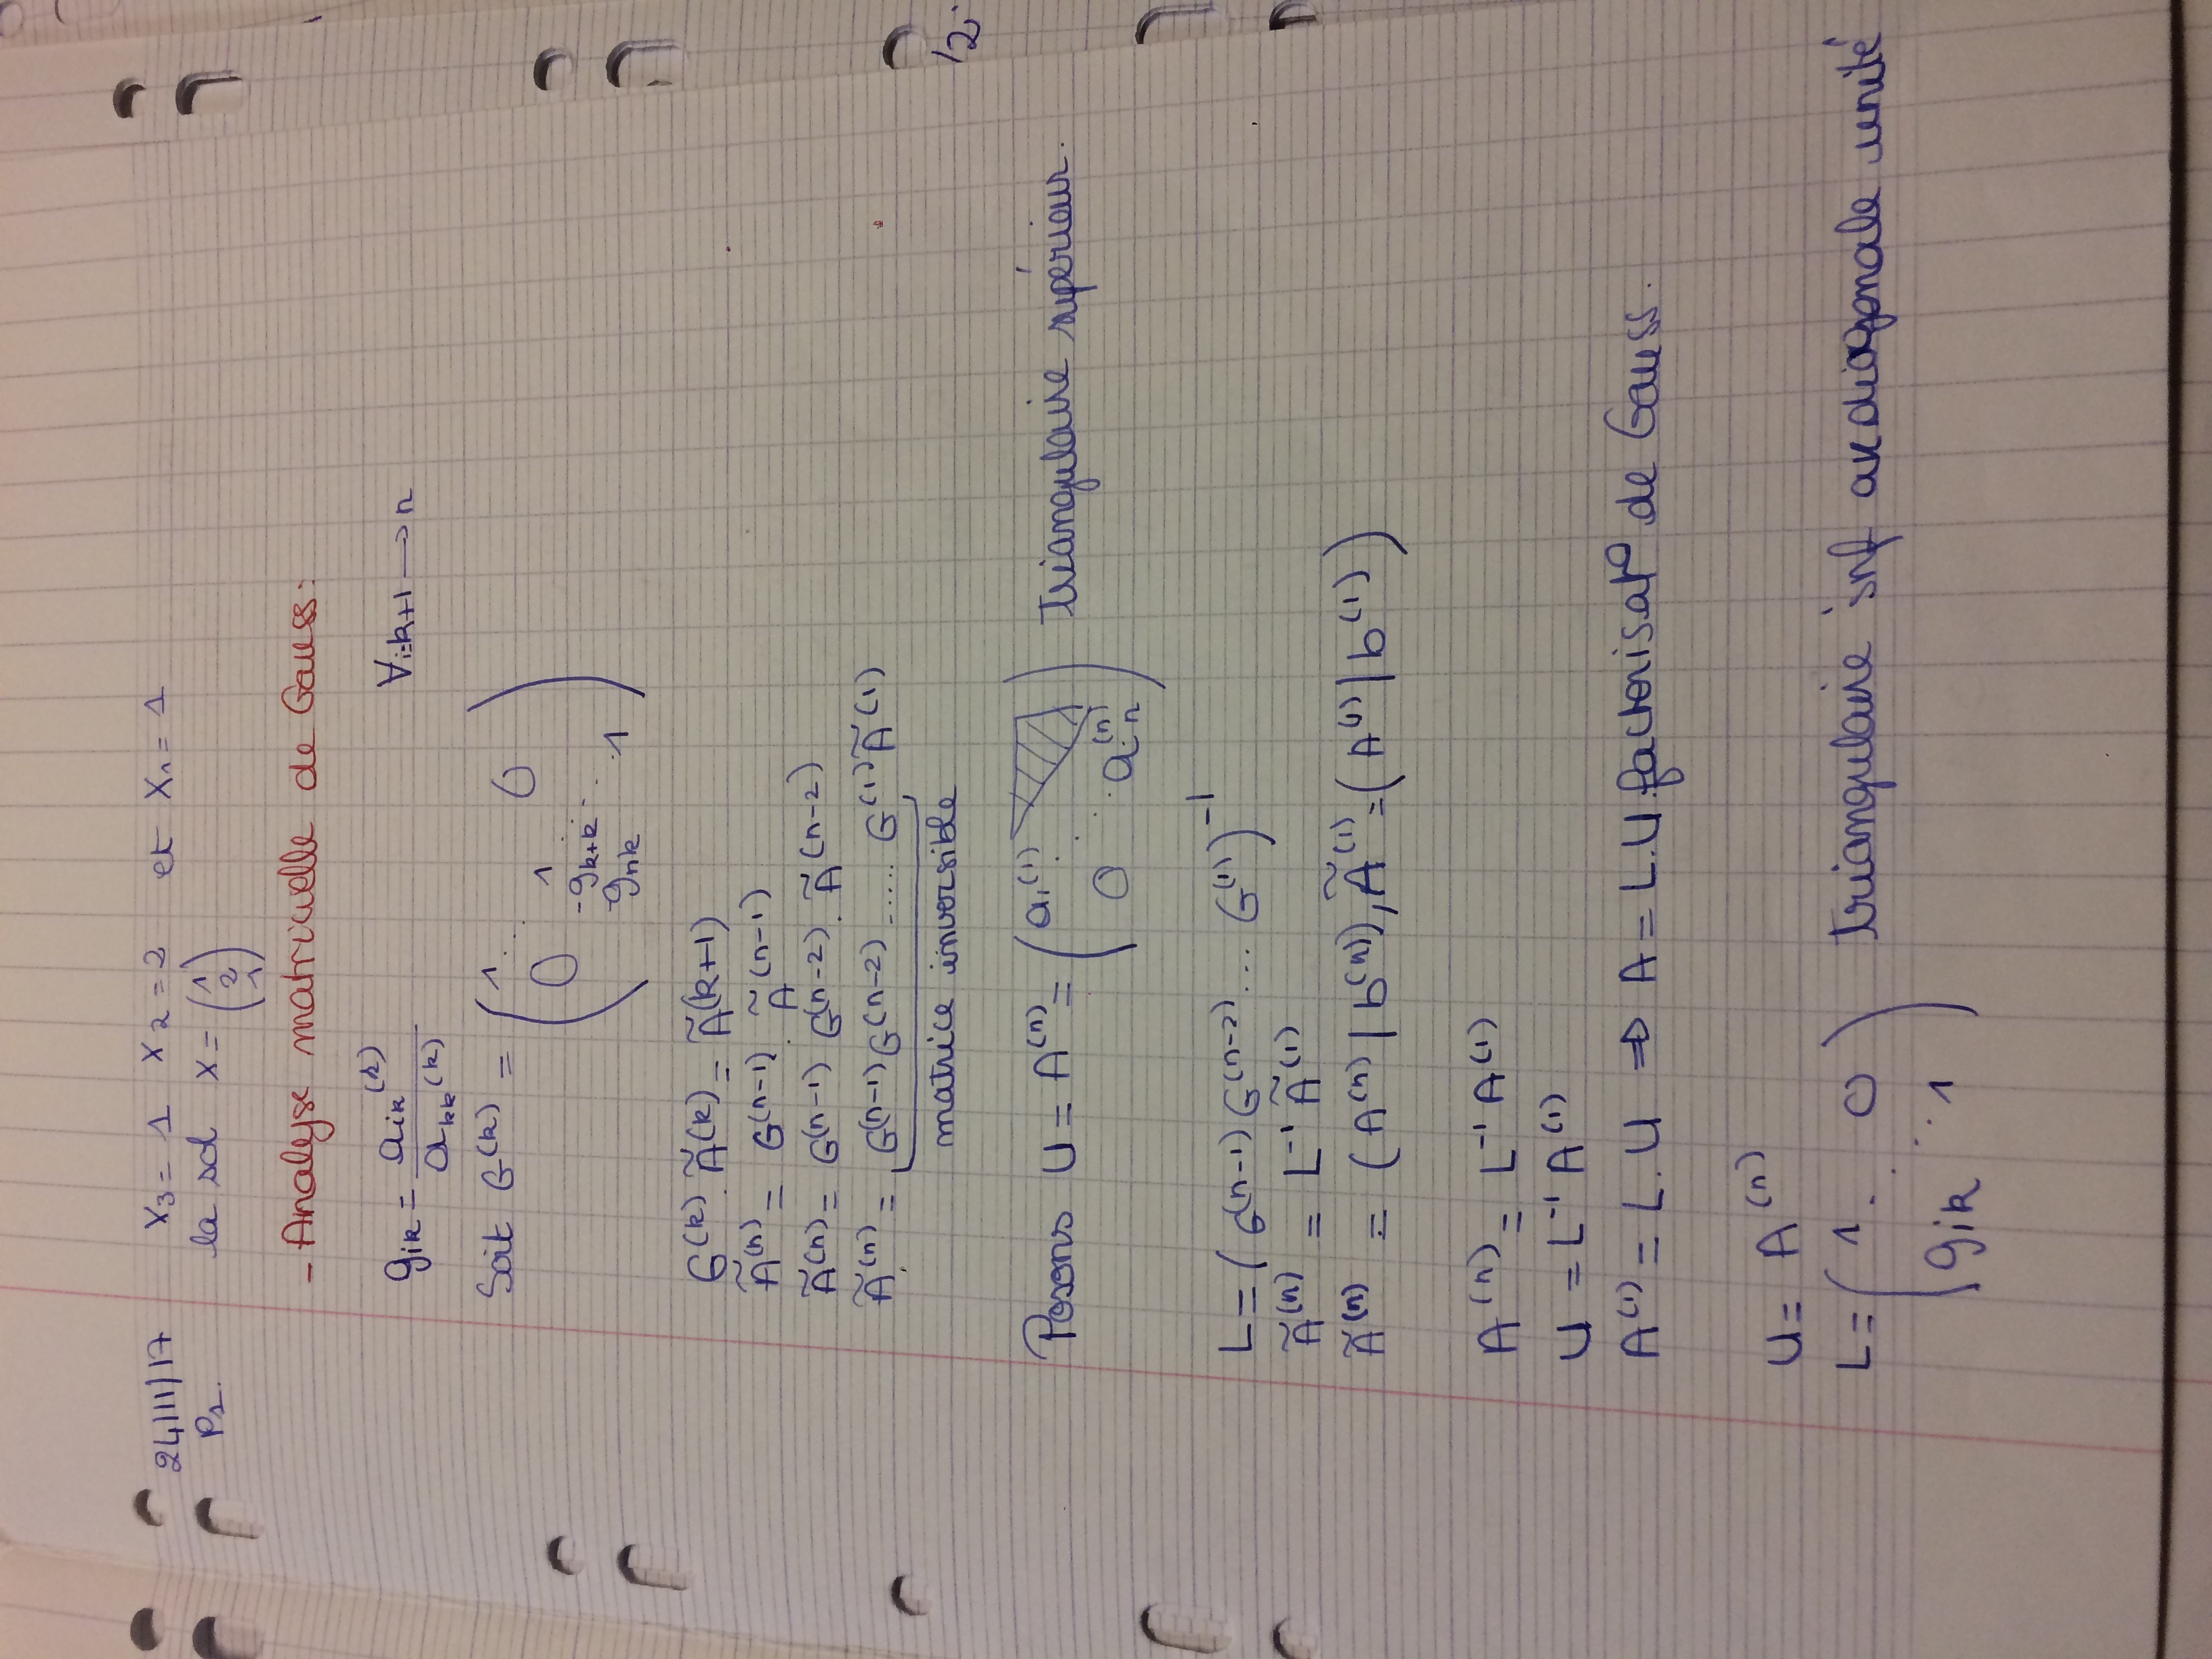 24/11/17 x₃ = 1 x₂ = 2 et x₁ = 1
P1. la sol x = (1 2 1)
- Analyse matricielle de Gauss:
gᵢₖ = aᵢₖ⁽ᵏ⁾ / aₖₖ⁽ᵏ⁾ ∀i=k+1 → n
Soit G⁽ᵏ⁾ = ( 1 . . 0
0 1
-gₖ₊ₖ .
-gₙₖ . 1 )
G⁽ᵏ⁾ . Ã⁽ᵏ⁾ = Ã⁽ᵏ⁺¹⁾
Ã⁽ⁿ⁾ = G⁽ⁿ⁻¹⁾ . Ã⁽ⁿ⁻¹⁾
Ã⁽ⁿ⁾ = G⁽ⁿ⁻¹⁾ G⁽ⁿ⁻²⁾ . Ã⁽ⁿ⁻²⁾
Ã⁽ⁿ⁾ = G⁽ⁿ⁻¹⁾ G⁽ⁿ⁻²⁾ ..... G⁽¹⁾ Ã⁽¹⁾
matrice inversible
Posons U = A⁽ⁿ⁾ = ( a₁⁽¹⁾ triangulaire supérieur.
0 aₙ⁽ⁿ⁾ )
L = ( G⁽ⁿ⁻¹⁾ G⁽ⁿ⁻²⁾ ... G⁽¹⁾ )⁻¹
Ã⁽ⁿ⁾ = L⁻¹ Ã⁽¹⁾
Ã⁽ⁿ⁾ = (A⁽ⁿ⁾ | b⁽ⁿ⁾), Ã⁽¹⁾ = (A⁽¹⁾ | b⁽¹⁾)
A⁽ⁿ⁾ = L⁻¹ A⁽¹⁾
U = L⁻¹ A⁽¹⁾
A⁽¹⁾ = L . U ⇒ A = L.U. factorisat° de Gauss.
U = A⁽ⁿ⁾
L = ( 1 . 0 triangulaire inf diagonale unité
gᵢₖ . 1 )